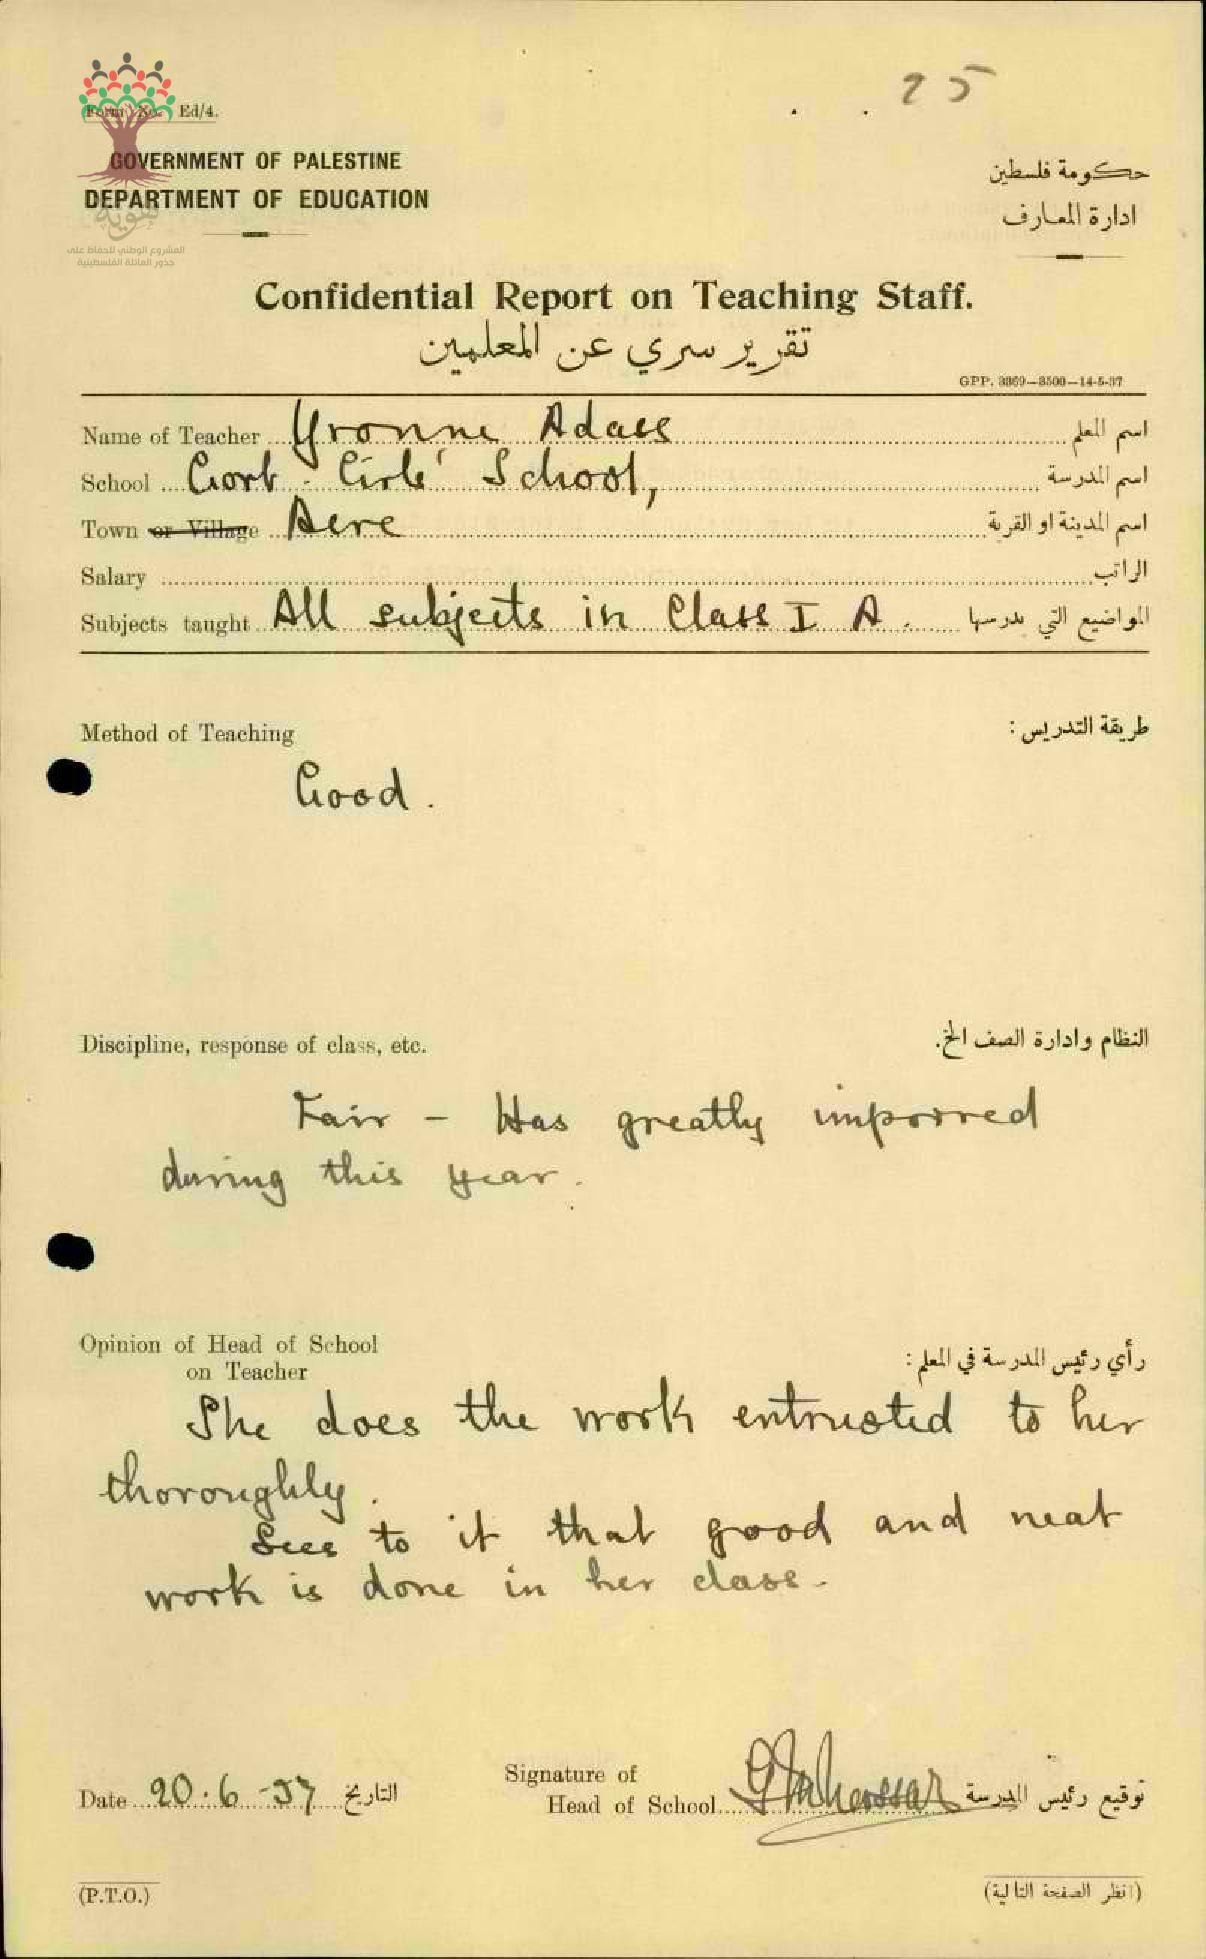 25
Form No. Ed/4.
GOVERNMENT OF PALESTINE
DEPARTMENT OF EDUCATION
حكومة فلسطين
ادارة المعارف
هوية
المشروع الوطني للحفاظ على
جذور العائلة الفلسطينية
Confidential Report on Teaching Staff.
تقرير سري عن المعلمين
GPP. 3369—3500—14-5-37
Name of Teacher Yvonne Adass اسم المعلم
School Govt. Girls' School, اسم المدرسة
Town or Village Acre اسم المدينة او القرية
Salary الراتب
Subjects taught All subjects in Class I A. المواضيع التي يدرسها
Method of Teaching طريقة التدريس:
Good.
Discipline, response of class, etc. النظام وادارة الصف الخ.
Fair - Has greatly imporved
during this year.
Opinion of Head of School
on Teacher رأي رئيس المدرسة في المعلم:
She does the work entrusted to her
thoroughly.
Sees to it that good and neat
work is done in her class.
Signature of
Date 20.6-37 التاريخ Head of School توقيع رئيس المدرسة
(P.T.O.) (انظر الصفحة التالية)